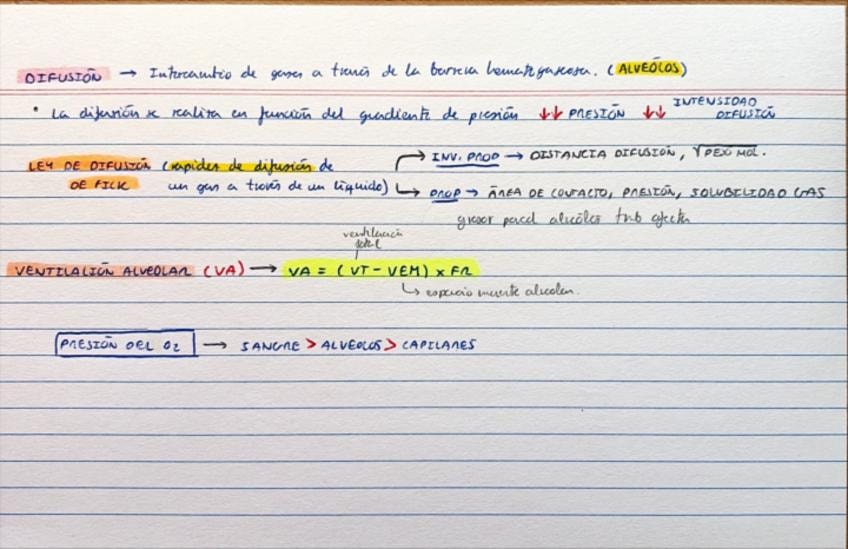 DIFUSIÓN → Intercambio de gases a través de la barrera hematogaseosa. (ALVEÓLOS)
• La difusión se realiza en función del gradiente de presión ↓↓ PRESIÓN ↓↓ INTENSIDAD DIFUSIÓN
LEY DE DIFUSIÓN (rapidez de difusión de → INV. PROP → DISTANCIA DIFUSIÓN, √PESO MOL.
DE FICK un gas a través de un líquido) → PROP → ÁREA DE CONTACTO, PRESIÓN, SOLUBILIDAD GAS
grosor pared alveólos tmb afecta
ventilación
total
VENTILACIÓN ALVEOLAR (VA) → VA = (VT - VEM) x FR
↳ espacio muerto alveolar.
PRESIÓN DEL O2 → SANGRE > ALVEOLOS > CAPILARES